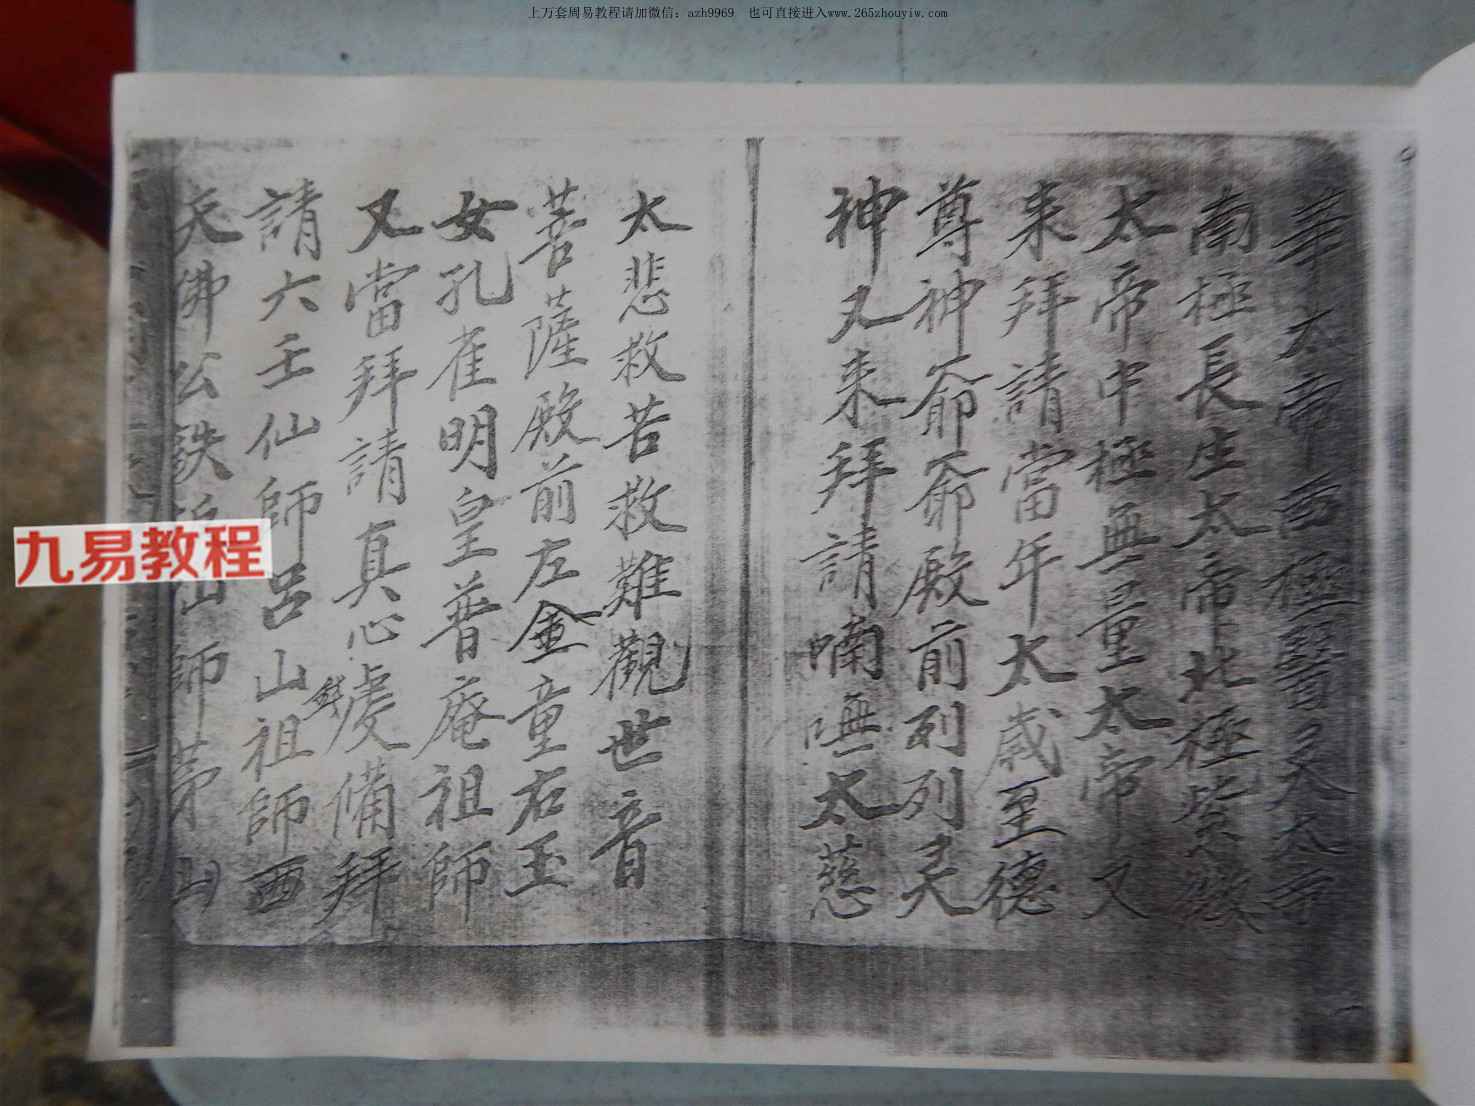 上万套周易教程请加微信：azh9969　也可直接进入www.265zhouyiw.com
華太帝西極醫灵太帝
南極長生太帝北極紫微
太帝中極無量太帝又
来拜請當年太歲至德
尊神爺爺殿前列列灵
神又来拜請喃嘸太慈
太悲救苦救難觀世音
菩薩殿前左金童右玉
女孔雀明皇普庵祖師
又當拜請真心虔備拜
錢
請六壬仙師呂山祖師西
天佛公鉄 山師茅山
九易教程